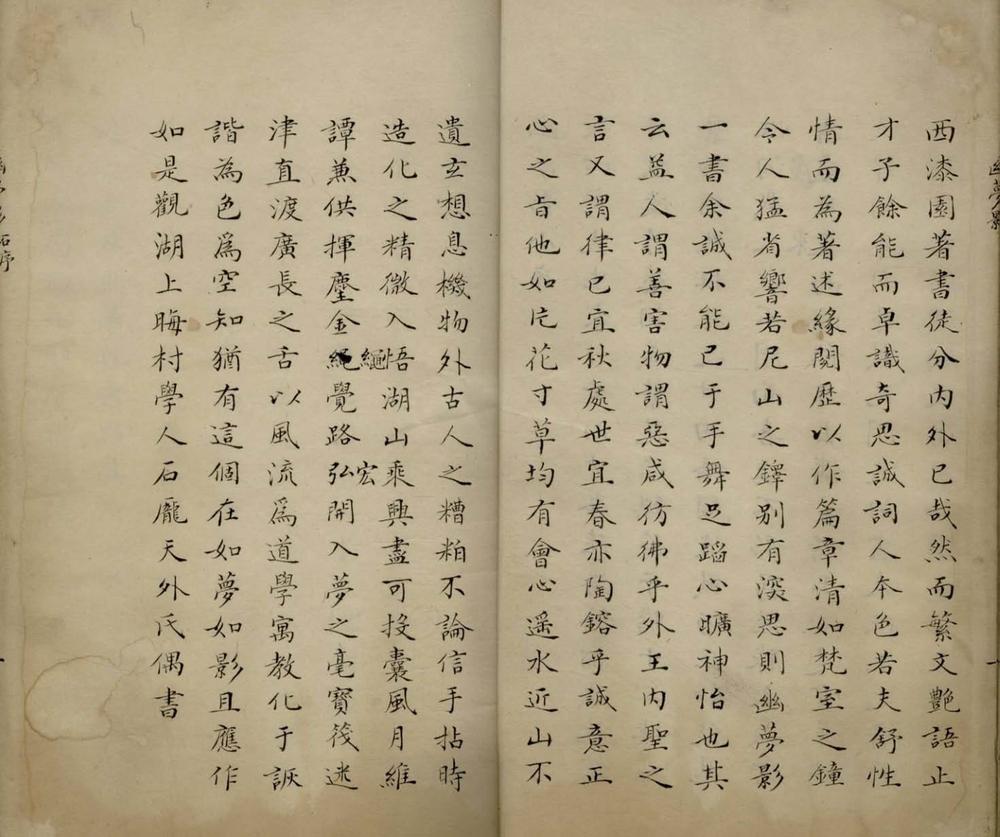 幽夢影
西漆園著書徒分内外已哉然而繁文艷語止
才子餘能而卓識奇思誠詞人本色若夫舒性
情而為著述緣閱歷以作篇章清如梵室之鐘
令人猛省響若尼山之鐸别有深思則幽夢影
一書余誠不能已于手舞足蹈心曠神怡也其
云益人謂善害物謂惡咸彷彿乎外王内聖之
言又謂律己宜秋處世宜春亦陶鎔乎誠意正
心之旨他如片花寸草均有會心遥水近山不
遺玄想息機物外古人之糟粕不論信手拈時
造化之精微入悟湖山乘興盡可投囊風月維
譚兼供揮麈金繩覺路弘宏開入夢之毫寶筏迷
津直渡廣長之舌以風流爲道學寓教化于詼
諧為色爲空知猶有這個在如夢如影且應作
如是觀湖上晦村學人石龎天外氏偶書
石序